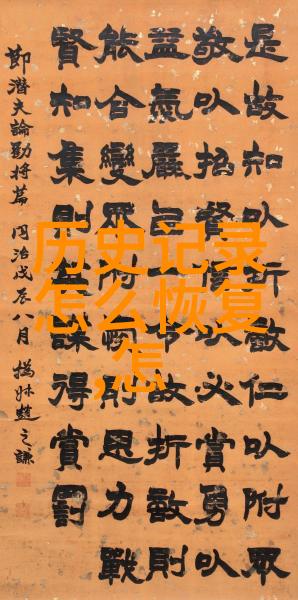 是故知㠯折敵仁㠯附眾
敬㠯招賢信㠯必賞勇㠯
益氣嚴㠯一令故折敵則
能合變眾附則思力戰
賢知集則謀得賞罰
節潛夫論勸將篇 同治戊辰八月 撝叔趙之謙
历史记录
怎么恢复
,怎